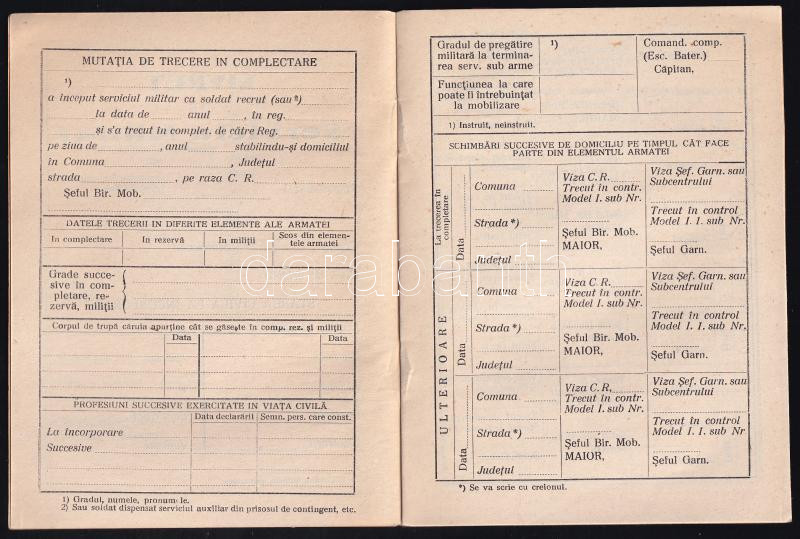 MUTAȚIA DE TRECERE IN COMPLECTARE
1)
a început serviciul militar ca soldat recrut (sau²)
la data de anul , în reg.
și s'a trecut în complet. de către Reg.
pe ziua de , anul stabilindu-și domiciliul
în Comuna , Județul
strada , pe raza C. R.
Șeful Bir. Mob.
DATELE TRECERII IN DIFERITE ELEMENTE ALE ARMATEI
In complectare In rezervă In miliții Scos din elemen-
tele armatei
Grade succe-
sive în com-
pletare, re-
zervă, miliții
Corpul de trupă căruia aparține cât se găsește în comp. rez. și miliții
Data Data
PROFESIUNI SUCCESIVE EXERCITATE IN VIAȚA CIVILĂ
Data declarării Semn. pers. care const.
La încorporare
Succesive
1) Gradul, numele, pronumele.
2) Sau soldat dispensat serviciul auxiliar din prisosul de contingent, etc.
Gradul de pregătire
militară la termina-
rea serv. sub arme
1)
Comand. comp.
(Esc. Bater.)
Căpitan,
Funcțiunea la care
poate fi întrebuințat
la mobilizare
1) Instruit, neinstruit.
SCHIMBĂRI SUCCESIVE DE DOMICILIU PE TIMPUL CÂT FACE
PARTE DIN ELEMENTUL ARMATEI
La trecerea în
completare
Data
Comuna
Strada*)
Județul
Viza C. R.
Trecut în contr.
Model I. sub Nr.
Șeful Bir. Mob.
MAIOR,
Viza Șef. Garn. sau
Subcentrului
Trecut în control
Model I. I. sub Nr.
Șeful Garn.
ULTERIOARE
Data
Comuna
Strada*)
Județul
Viza C. R.
Trecut în contr.
Model I. sub Nr.
Șeful Bir. Mob.
MAIOR,
Viza Șef. Garn. sau
Subcentrului
Trecut în control
Model I. I. sub Nr.
Șeful Garn.
Data
Comuna
Strada*)
Județul
Viza C. R,
Trecut în contr.
Model I. sub Nr.
Șeful Bir. Mob.
MAIOR,
Viza Șef. Garn. sau
Subcentrului
Trecut în control
Model I. I. sub Nr
Șeful Garn.
*) Se va scrie cu creionul.
darabanth